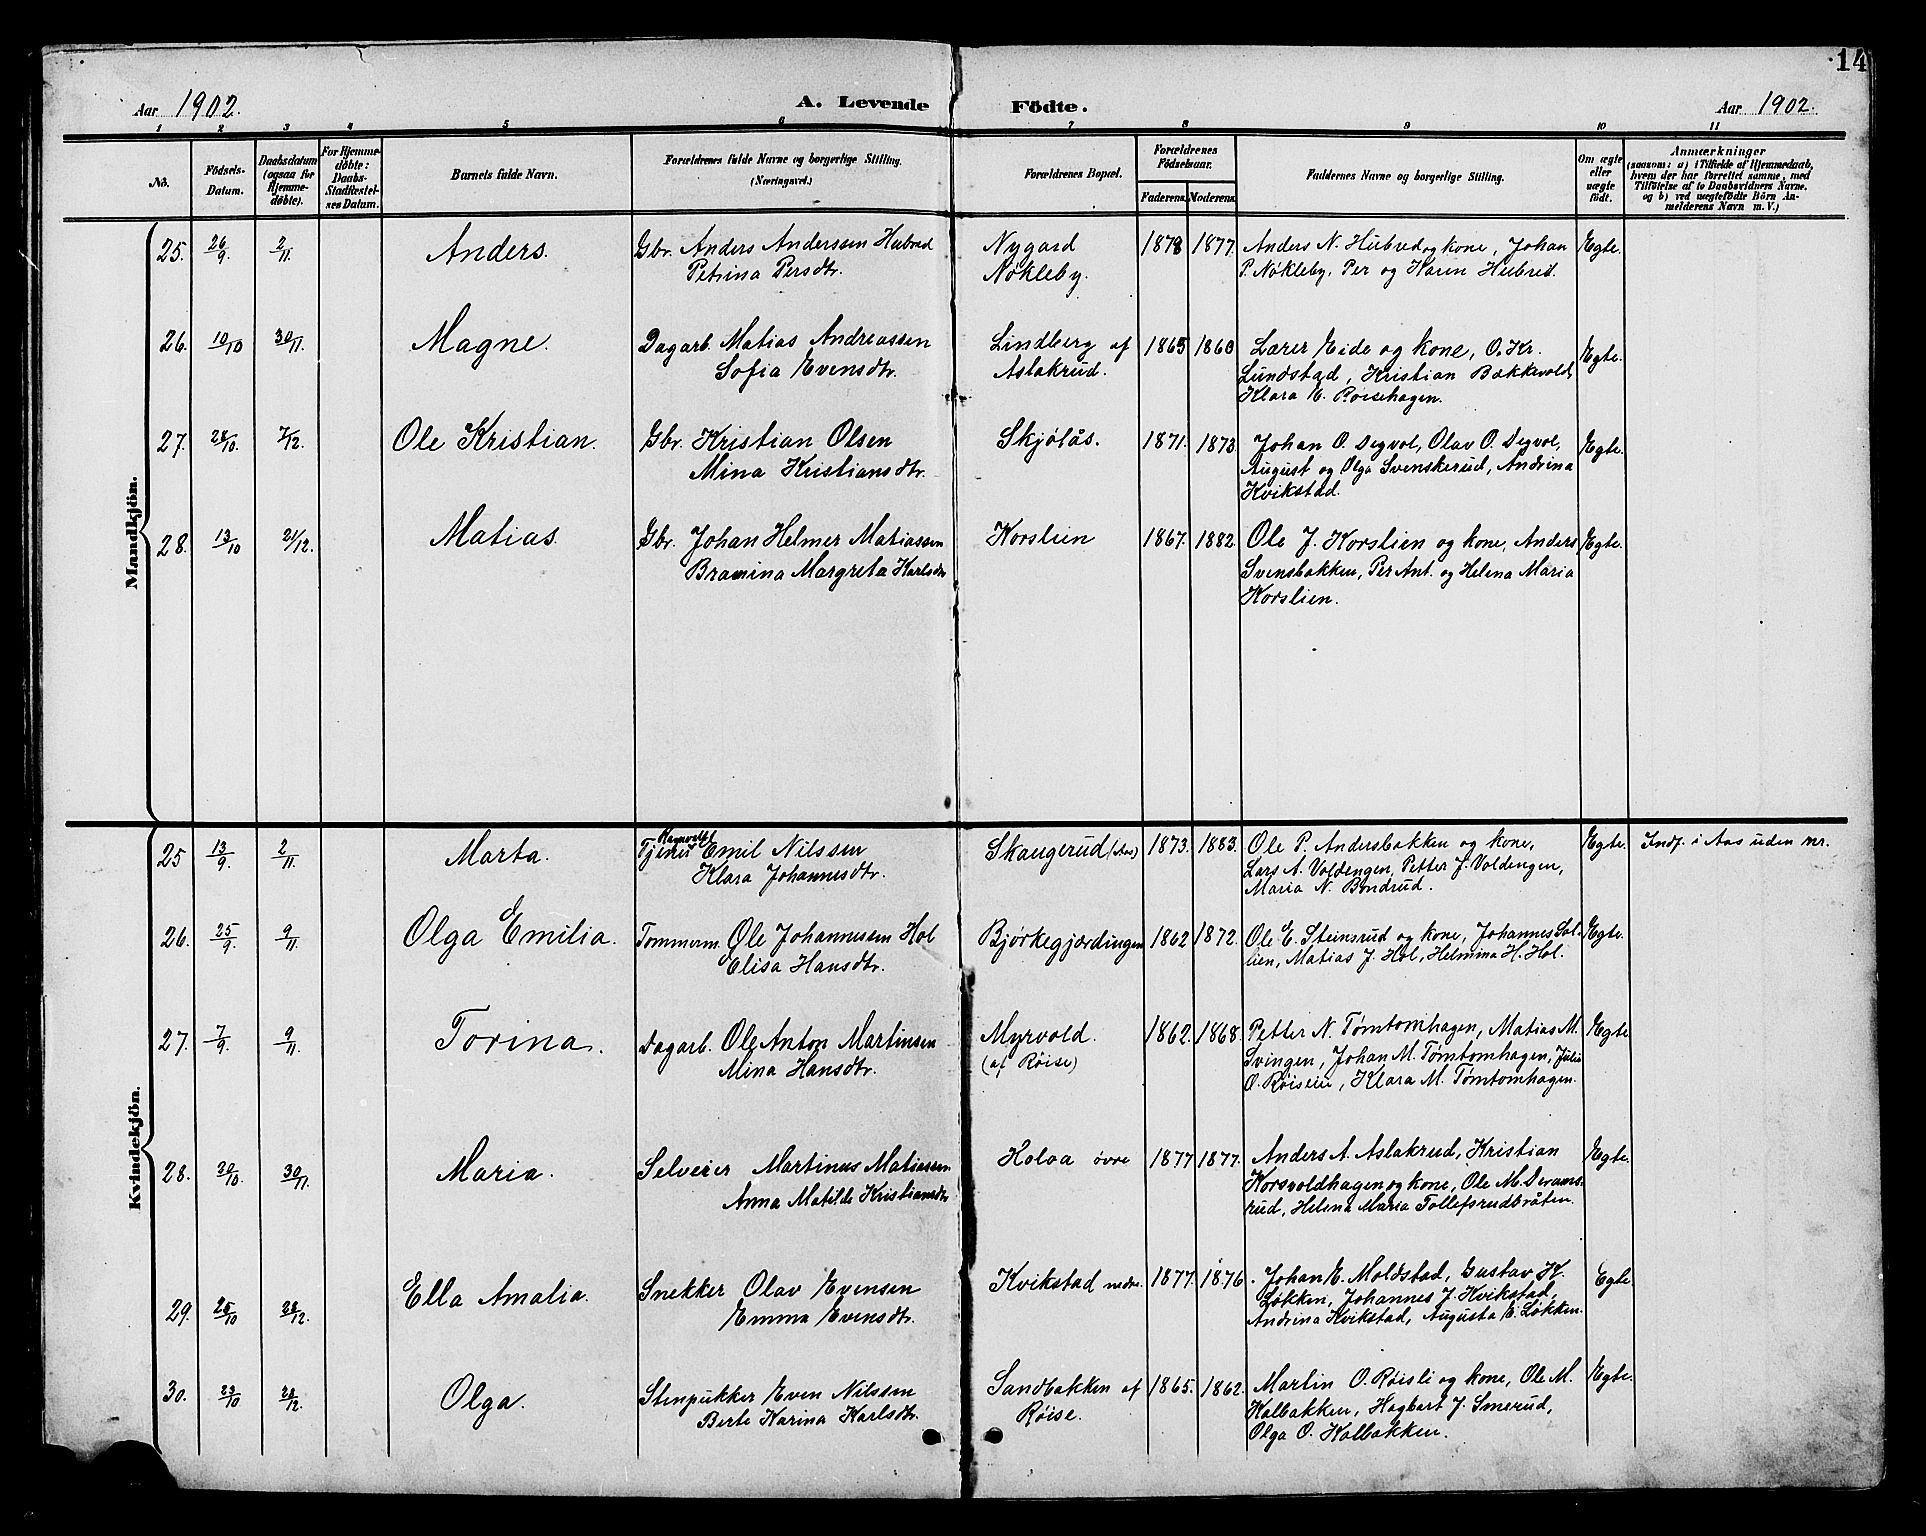 14
Aar 1902. A. Levende Födte. Aar 1902.
1 2 3 4 5 6 7 8 9 10 11
No. Födsels-Datum. Daabsdatum (ogsaa for Hjemmedøbte). For Hjemmedøbte: Daabs-Stadfæstelses Datum. Barnets fulde Navn. Forældrenes fulde Navne og borgerlige Stilling. (Næringsvei.) Forældrenes Bopæl. Forældrenes Födselsaar. Faderens. Moderens. Faddernes Navne og borgerlige Stilling. Om ægte eller uægte født. Anmærkninger
(saasom: a) i Tilfælde af Hjemmedaab,
hvem der har forrettet samme, med
Tilføielse af to Daabsvidners Navne.
og b) ved uægtefødte Börn An-
melderens Navn m. V.)
Mandkjön.
25. 26/9. 2/11. Anders. Gbr. Anders Anderssen Hubred Nygard 1878 1877. Anders N. Hubred og kone, Johan Egte.
Petrina Persdtr. Nøkleby. P. Nøkleby, Per og Karen Hubred.
26. 10/10 30/11. Magne. Dagarb. Matias Andreassen Lindberg af 1865 1860 Lærer Eide og kone, O. Kr. Egte.
Sofia Evensdtr. Aslakrud. Lundstad, Kristian Bækkevold,
Klara E. Røisehagen.
27. 28/10. 7/12. Ole Kristian. Gbr. Kristian Olsen Skjølås. 1871. 1873. Johan O. Degvol, Olav O. Degvol, Egte.
Mina Kristiansdtr. August og Olga Svenskerud, Andrina
Kvikstad.
28. 13/10 21/12. Matias. Gbr. Johan Helmer Matiassen Korslien 1867. 1882. Ole J. Korslien og kone, Anders Egte.
Bramina Margreta Karlsdtr Svensbakken, Per Ant. og Helena Maria
Korslien.
Kvindekjön.
25 13/9. 2/11. Marta. Tjener Emil Nilssen Skaugerud (Aas) 1873. 1883. Ole P. Andersbakken og kone, Egte. Indf. i Aas uden nr.
Klara Johannesdtr. Lars A. Voldengen, Petter J. Voldengen,
Maria N. Bondrud.
26. 25/9. 9/11. Olga Emilia. Tømmerm. Ole Johannessen Hol Bjørkegjærdingen 1862 1872. Ole E. Steinsrud og kone, Johannes Sol- Egte.
Elisa Hansdtr. lien, Matias J. Hol, Helmina H. Hol.
27. 7/9. 9/11. Torina. Dagarb. Ole Anton Martinsen Myrvold. 1862. 1868. Petter N. Tømtomhagen, Matias M. Egte
Mina Hansdtr. (af Røise) Svingen, Johan M. Tømtomhagen, Julie
O. Røiseie, Klara M. Tømtomhagen.
28. 20/10. 30/11. Maria. Selveier Martinus Matiassen Holoa øvre 1877 1877. Anders A. Aslakrud, Kristian Egte.
Anna Matilde Kristiansdtr Korsvoldhagen og kone, Ole M. Derams-
rud, Helena Maria Tollefsrudbråten.
29. 25/10 28/12. Ella Amalia. Snekker Olav Evensen Kvikstad nedre. 1877. 1876. Johan E. Moldstad, Gustav K. Egte
Emma Evensdtr. Løkken, Johannes J. Kvikstad,
Andrina Kvikstad, Augusta E. Løkken.
30. 23/10 28/12. Olga. Stenpukker Even Nilssen Sandbakken af 1865. 1862. Martin O. Røisli og kone, Ole M. Egte.
Berte Karina Karlsdtr. Røise. Kalbakken, Hagbart J. Smerud,
Olga O. Kalbakken.